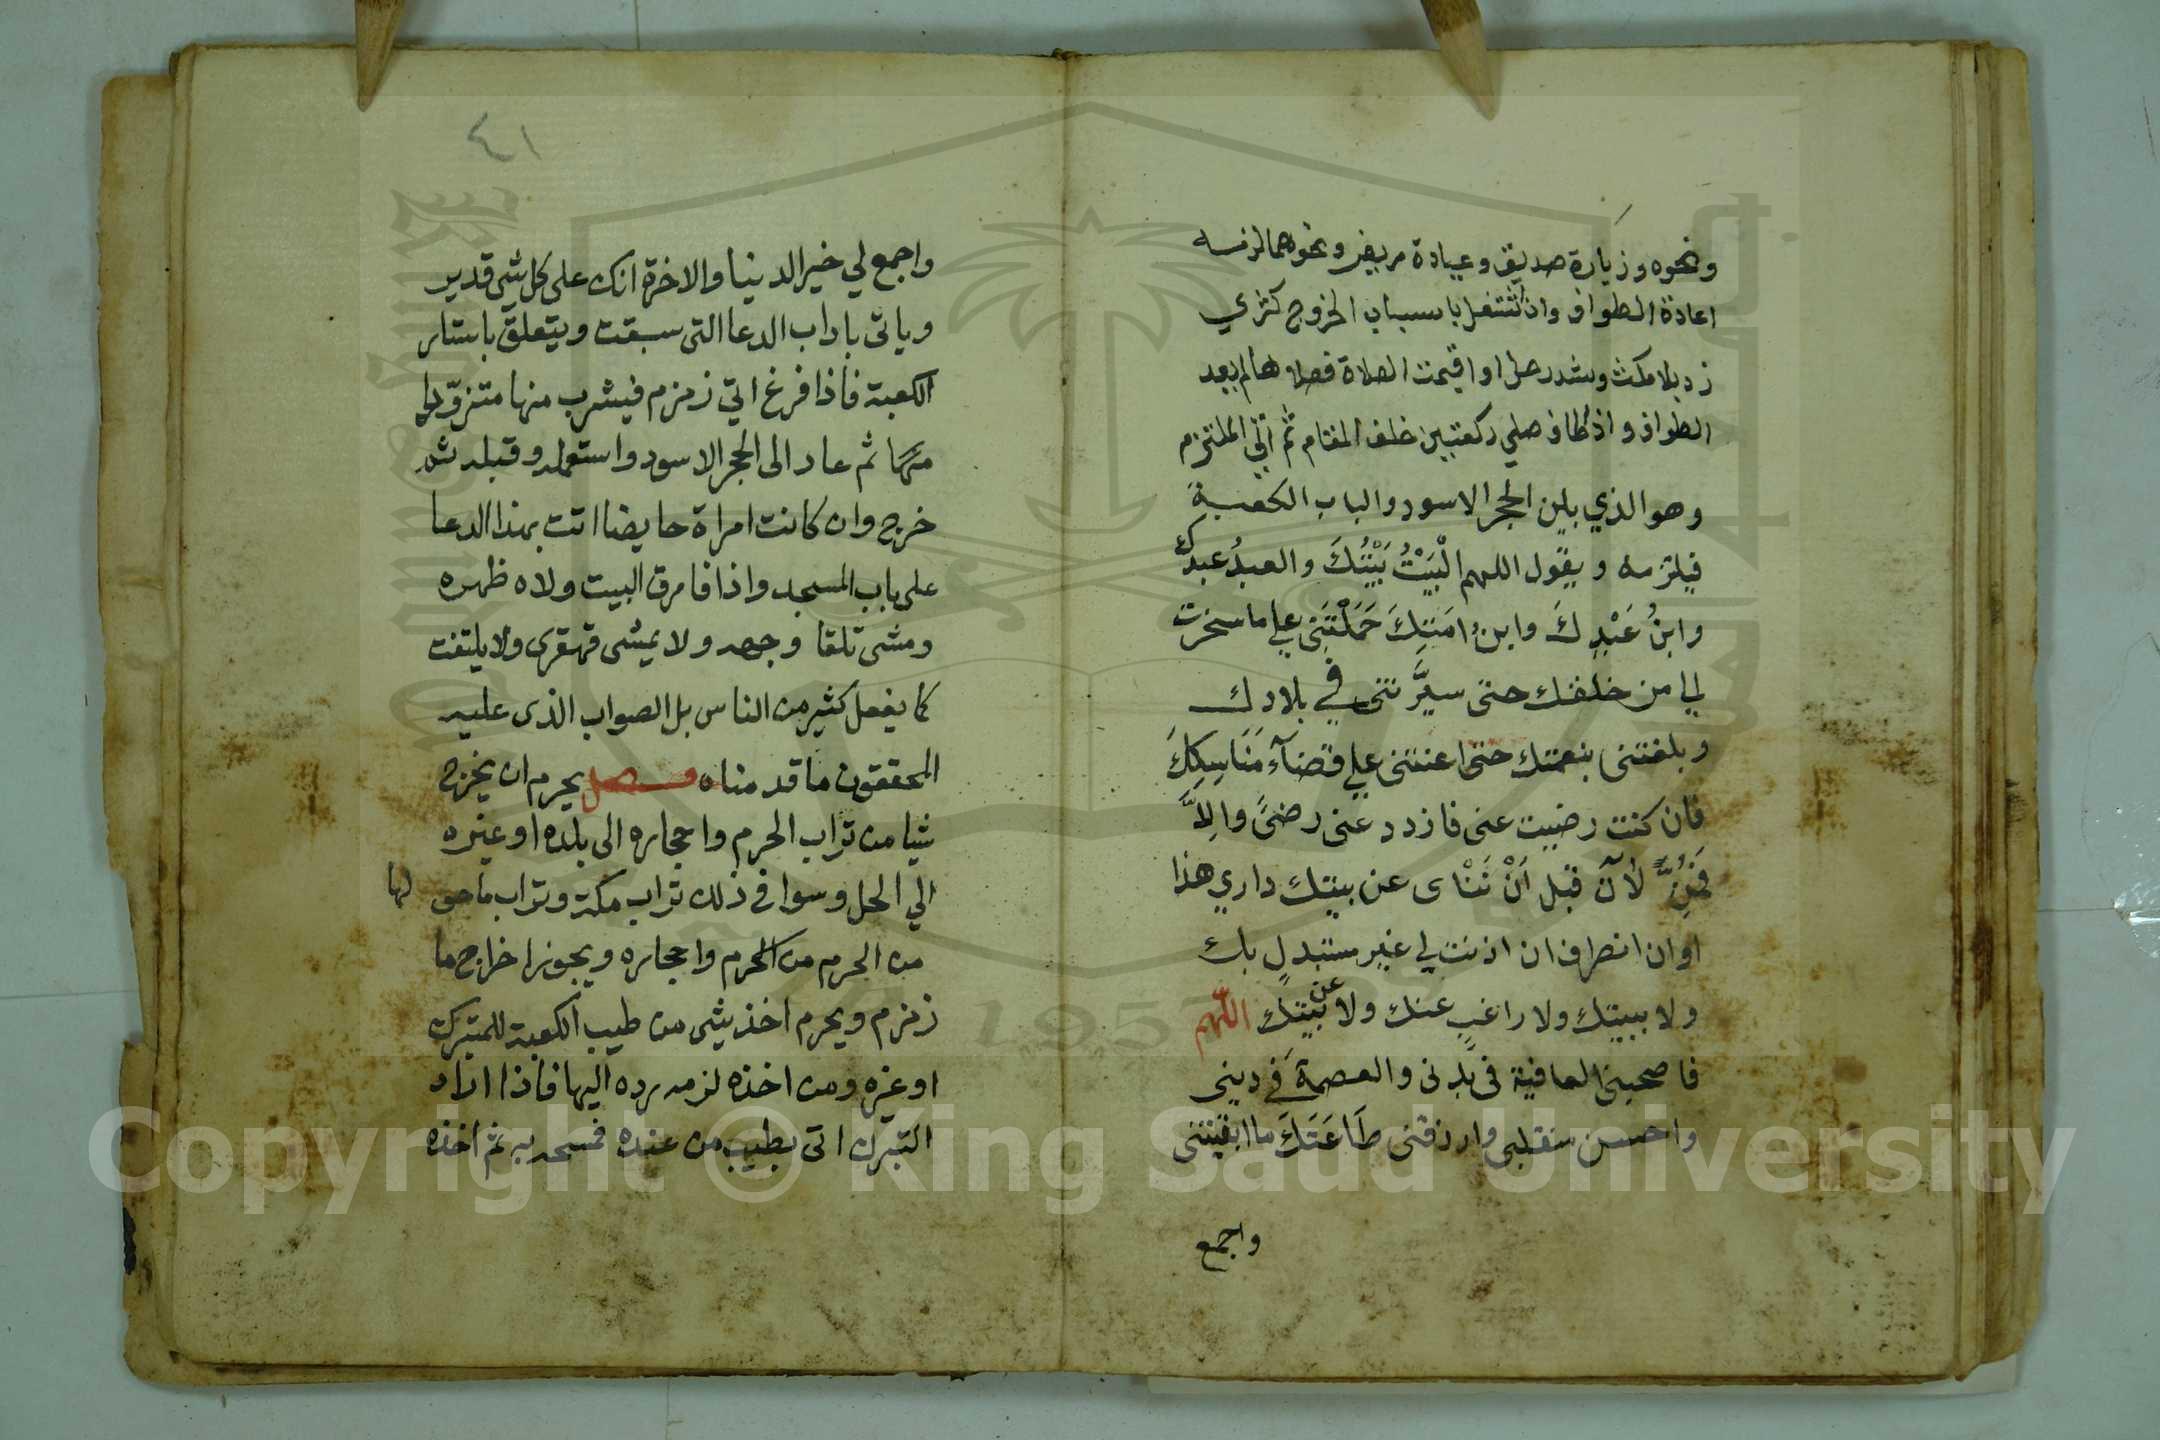 ونحوه وزيارة صديق وعيادة مريض ونحوهما لزمه
اعادة الطواف وان اشتغل باسباب الخروج كشري
زد بلا مكث وشد رحل او اقيمت الصلاة فصلاها لم يعد
الطواف واذا طاف صلي ركعتين خلف المقام ثم اتي الملتزم
وهو الذي بين الحجر الاسود والباب الكعبة
فيلتزمه ويقول اللهم الْبَيْتُ بَيْتُكَ والعبدُ عبدك
وابنُ عَبْدِكَ وابنُ امَتِكَ حَمَلْتَنِي علي ما سخرت
لي من خلقك حتى سيَّرتني في بلادك
وبلغتني بنعمتك حتى اعنتني علي قضآء مَنَاسِكِكَ
فان كنت رضيت عني فازدد عني رضىً والاَّ
فَمُنَّ لآن قبل اَنْ تَنْاى عن بيتك داري هذا
اوان انصرافي ان اذنت لي غير مستبدلٍ بك
ولا ببيتك ولا راغبٍ عنك ولا عن بيتك اللّهم
فاصحبني العافية في بدني والعصمة في ديني
واحسن منقلبي وارزقني طَاعَتَكَ ما ابقيتني
واجمع
٤١
واجمع لي خير الدينا والاخرة انك على كل شي قدير
وياتي باداب الدعا التي سبقت ويتعلق باستار
الكعبة فاذا فرغ اتي زمزم فيشرب منها متزوّدا
منها ثم عاد الى الحجر الاسود واستلمه وقبله ثم
خرج وان كانت امراة حايضا اتت بهذا الدعا
على باب المسجد واذا فارق البيت ولاه ظهره
ومشى تلقا وجهه ولا يمشى قهقرى ولا يلتفت
كما يفعل كثير من الناس بل الصواب الذى عليه
المحققون ما قدمناه فصل يحرم ان يخرج
شيا من تراب الحرم واحجاره الى بلده او غيره
الي الحل وسوا في ذلك تراب مكة وتراب ما حو لها
من الحرم من الحرم واحجاره ويجوز اخراج ما
زمزم ويحرم اخذ شى من طيب الكعبة للتبرك
او غيره ومن اخذه لزمه رده اليها فاذا اراد
التبرك اتى بطيب من عنده فمسحه به ثم اخذه
Copyright © King Saud University
1957